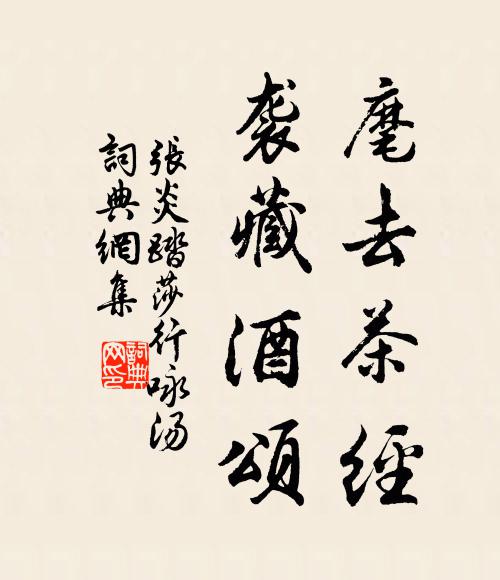 麾去茶經
袭藏酒頌
張炎踏莎行咏湯
詞典網集
詞典
网印